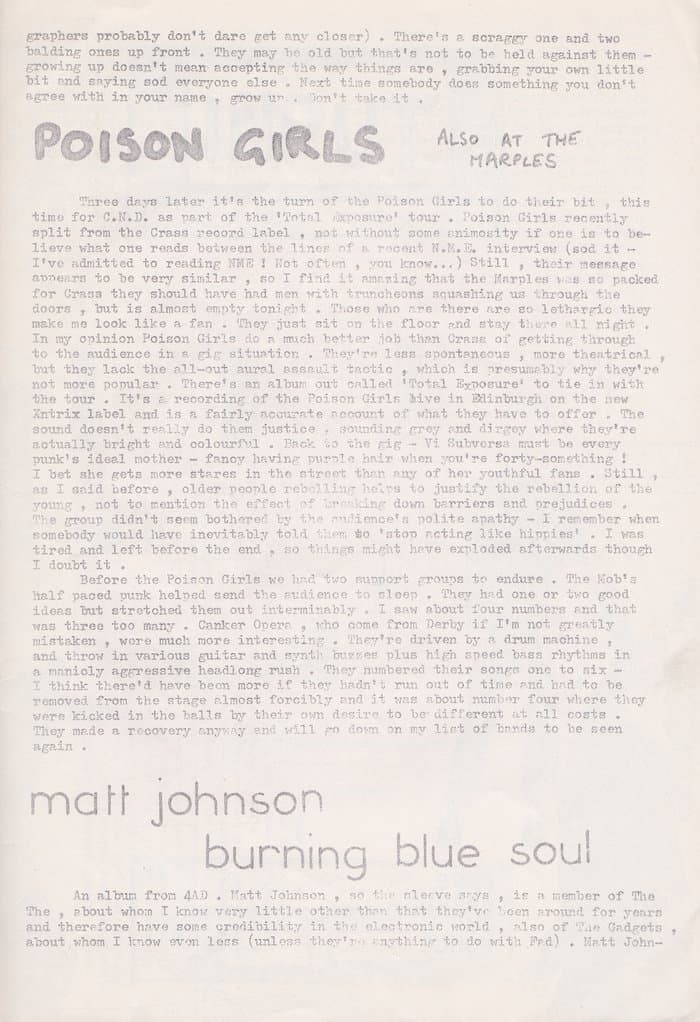 graphers probably don't dare get any closer) . There's a scraggy one and two
balding ones up front . They may be old but that's not to be held against them -
growing up doesn't mean accepting the way things are , grabbing your own little
bit and saying sod everyone else . Next time somebody does something you don't
agree with in your name , grow up . Don't take it .
POISON GIRLS ALSO AT THE
MARPLES
Three days later it's the turn of the Poison Girls to do their bit , this
time for C.N.D. as part of the 'Total Exposure' tour . Poison Girls recently
split from the Crass record label , not without some animosity if one is to be-
lieve what one reads between the lines of a recent N.M.E. interview (sod it -
I've admitted to reading NME ! Not often , you know...) Still , their message
appears to be very similar , so I find it amazing that the Marples was so packed
for Crass they should have had men with truncheons squashing us through the
doors , but is almost empty tonight . Those who are there are so lethargic they
make me look like a fan . They just sit on the floor and stay there all night .
In my opinion Poison Girls do a much better job than Crass of getting through
to the audience in a gig situation . They're less spontaneous , more theatrical ,
but they lack the all-out aural assault tactic , which is presumably why they're
not more popular . There's an album out called 'Total Exposure' to tie in with
the tour . It's a recording of the Poison Girls live in Edinburgh on the new
Xntrix label and is a fairly accurate account of what they have to offer . The
sound doesn't really do them justice , sounding grey and dirgey where they're
actually bright and colourful . Back to the gig - Vi Subversa must be every
punk's ideal mother - fancy having purple hair when you're forty-something !
I bet she gets more stares in the street than any of her youthful fans . Still ,
as I said before , older people rebelling helps to justify the rebellion of the
young , not to mention the effect of breaking down barriers and prejudices .
The group didn't seem bothered by the audience's polite apathy - I remember when
somebody would have inevitably told them to 'stop acting like hippies' . I was
tired and left before the end , so things might have exploded afterwards though
I doubt it .
Before the Poison Girls we had two support groups to endure . The Mob's
half paced punk helped send the audience to sleep . They had one or two good
ideas but stretched them out interminably . I saw about four numbers and that
was three too many . Canker Opera , who come from Derby if I'm not greatly
mistaken , were much more interesting . They're driven by a drum machine ,
and throw in various guitar and synth buzzes plus high speed bass rhythms in
a manicly aggressive headlong rush . They numbered their songs one to six -
I think there'd have been more if they hadn't run out of time and had to be
removed from the stage almost forcibly and it was about number four where they
were kicked in the balls by their own desire to be different at all costs .
They made a recovery anyway and will go down on my list of bands to be seen
again .
matt johnson
burning blue soul
An album from 4AD . Matt Johnson , so the sleeve says , is a member of The
The , about whom I know very little other than that they've been around for years
and therefore have some credibility in the electronic world , also of The Gadgets ,
about whom I know even less (unless they're anything to do with Fad) . Matt John-